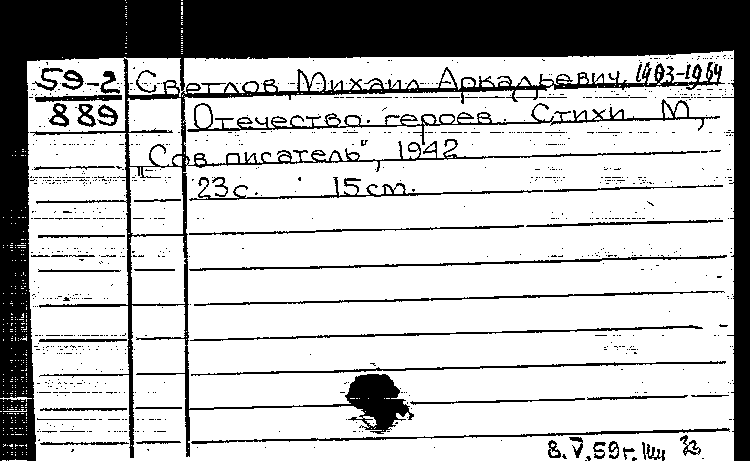 59-2 Светлов, Михаил Аркадьевич, 1903-1964
889 Отечество героев. Стихи М,
"Сов. писатель", 1942
23 с. 15 cm.
8.V.59г.